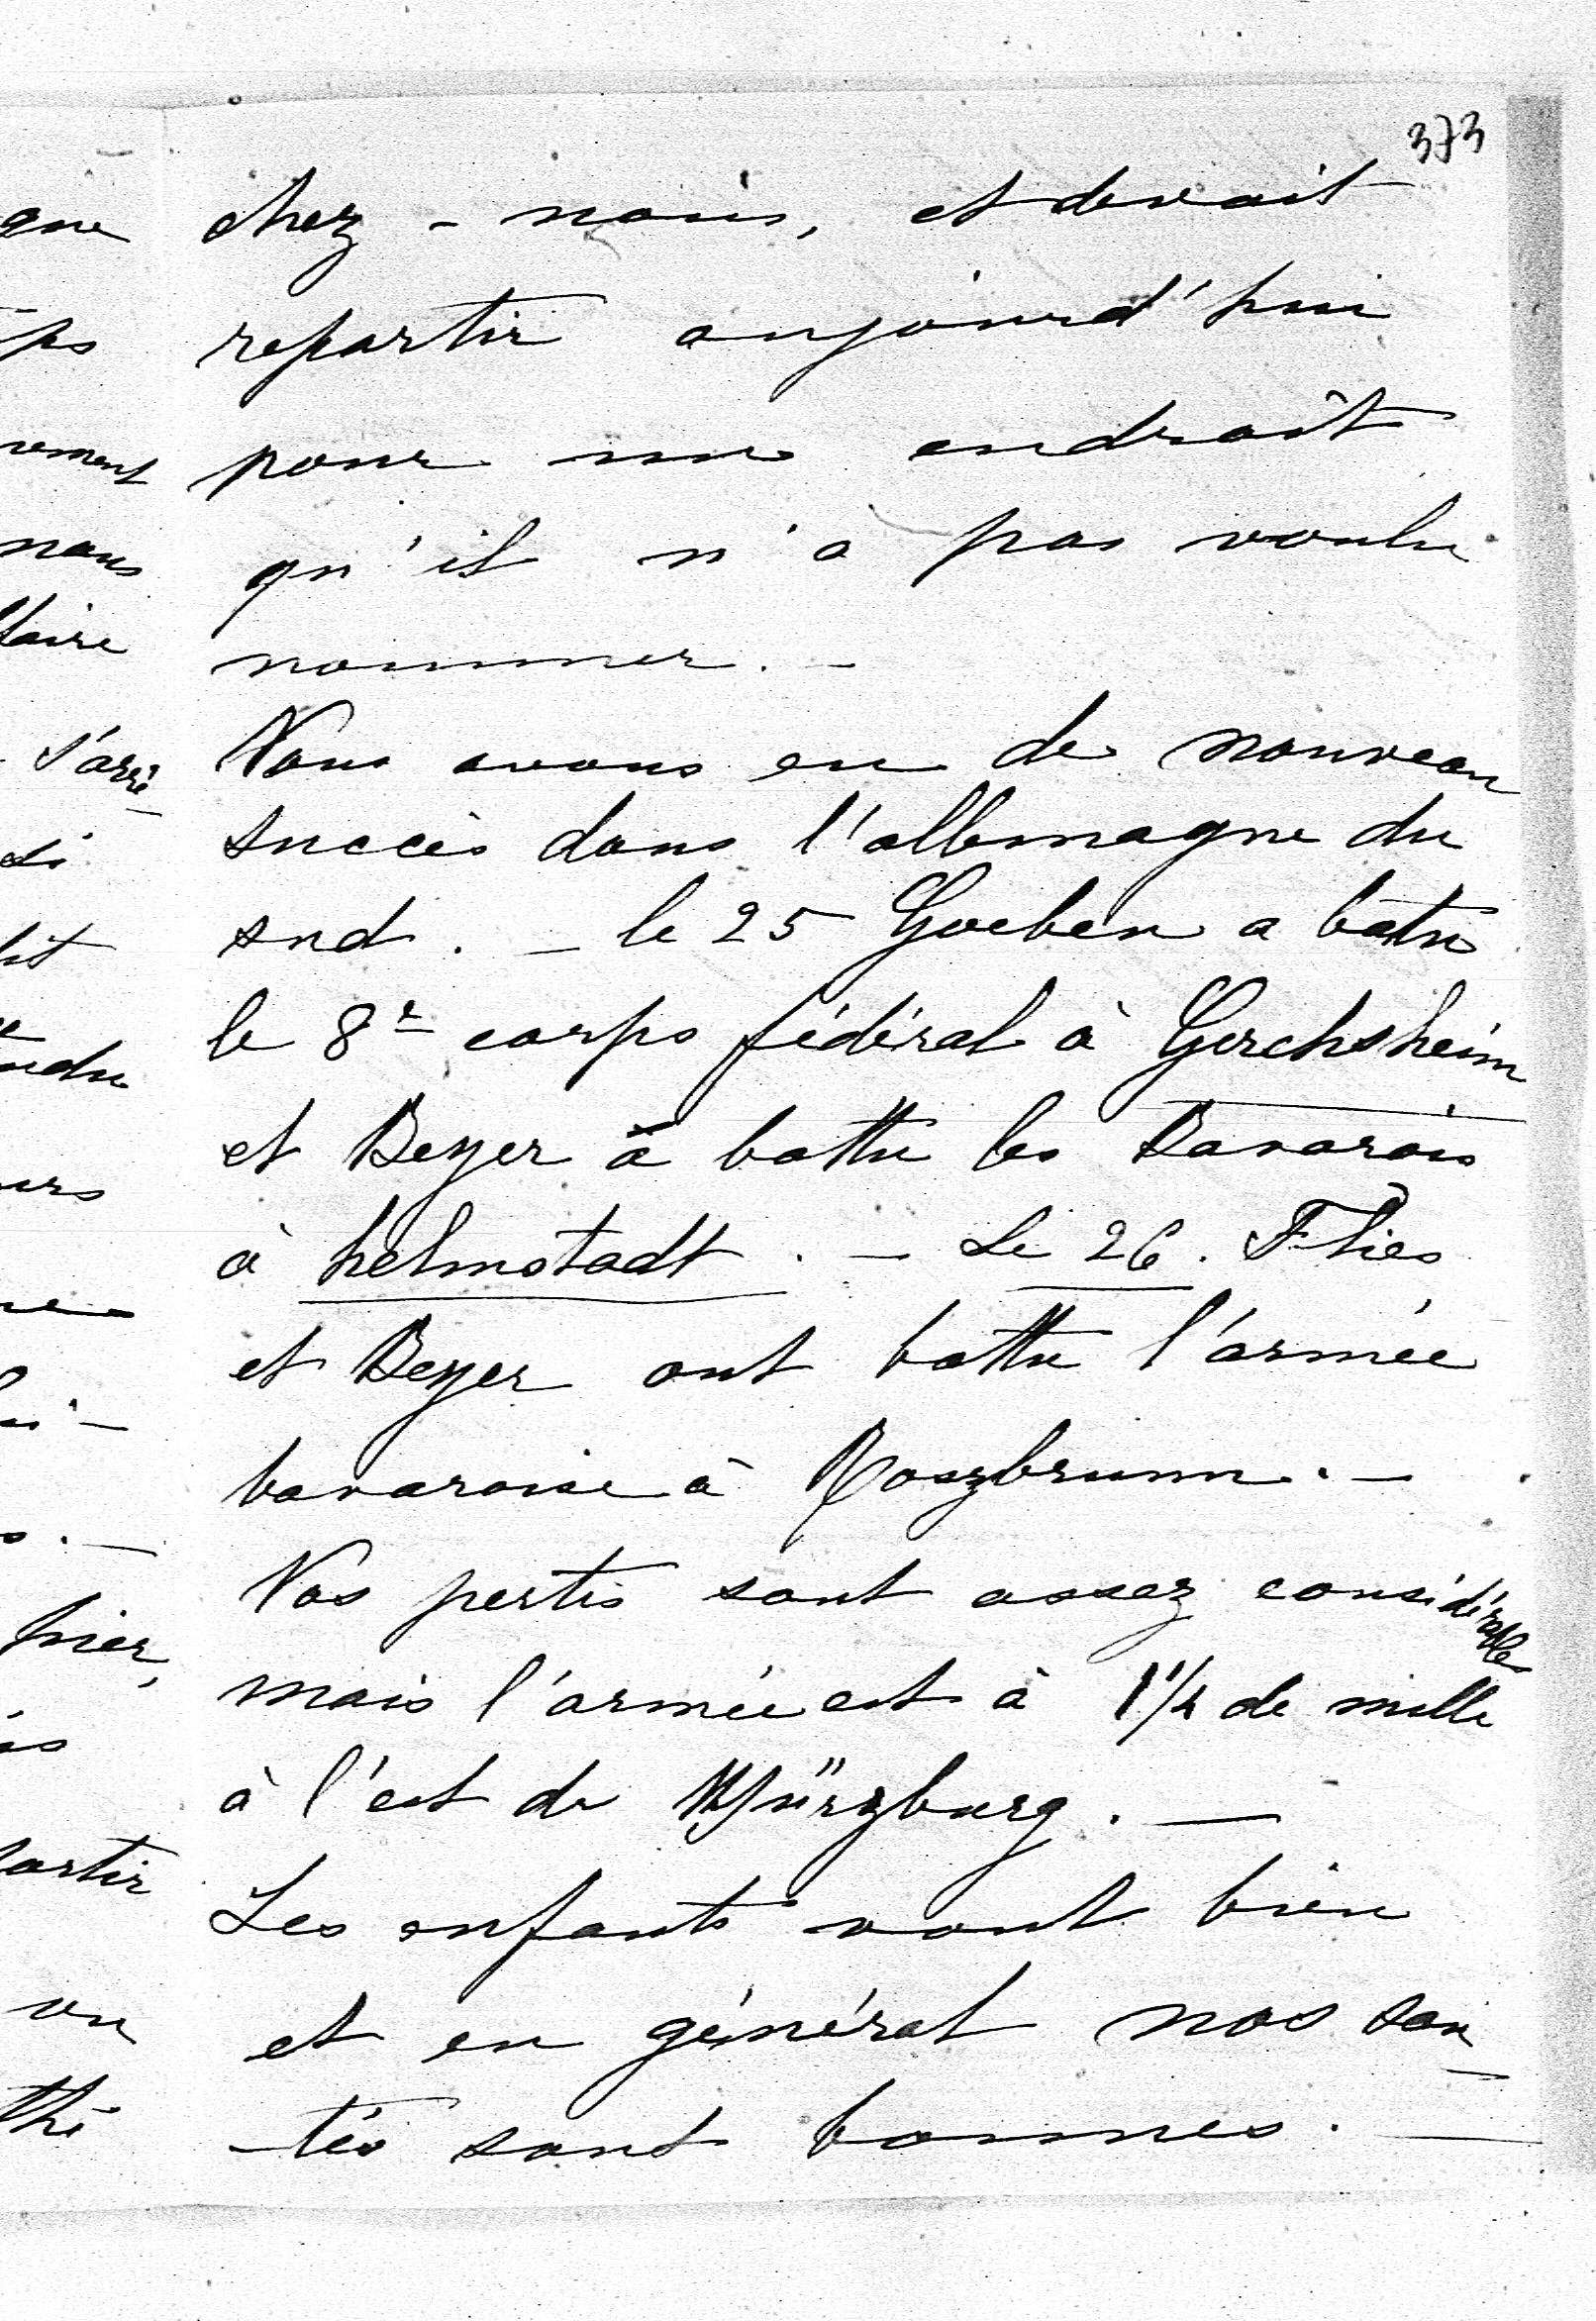 373
chez - nous, et devait
repartir aujourd'hui
pour un endroit
qu'il n'a pas voulu
nommer. -
Nous avons eu de nouveau
succès dans l'allemagne du
sud. - le 25 Goeben a batu
le 8e corps fédéral à Gerchsheim
et Beyer à battu les Bavarois
à helmstadt. - Le 26. Flies
et Beyer ont battu l'armée
bavaroise à Roszbrunn. -
Nos pertes sont assez considérables
mais l'armée est à 1 1/4 de mille
à l'est de Würzburg. -
Les enfants vont bien
et en général nos san-
-tés sont bonnes. -